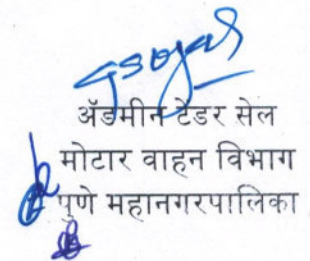 ॲडमीन टेंडर सेल
मोटार वाहन विभाग
पुणे महानगरपालिका